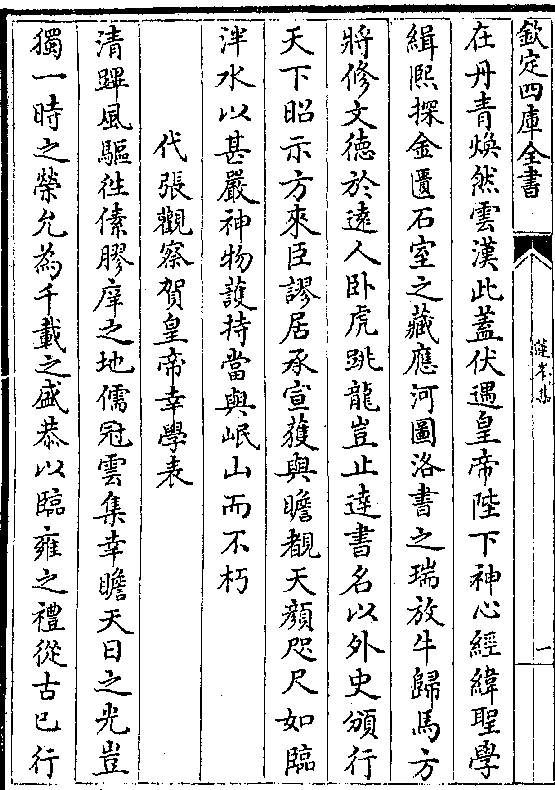 欽定四庫全書
蓮峯集
一
在丹青煥然雲漢此蓋伏遇皇帝陛下神心經緯聖學
緝熙探金匱石室之藏應河圖洛書之瑞放牛歸馬方
將修文德於遠人臥虎跳龍豈止達書名以外史頒行
天下昭示方來臣謬居承宣獲與瞻覩天顏咫尺如臨
泮水以甚嚴神物護持當與岷山而不朽
代張觀察賀皇帝幸學表
清蹕風驅徃傃膠庠之地儒冠雲集幸瞻天日之光豈
獨一時之榮允為千載之盛恭以臨雍之禮從古已行